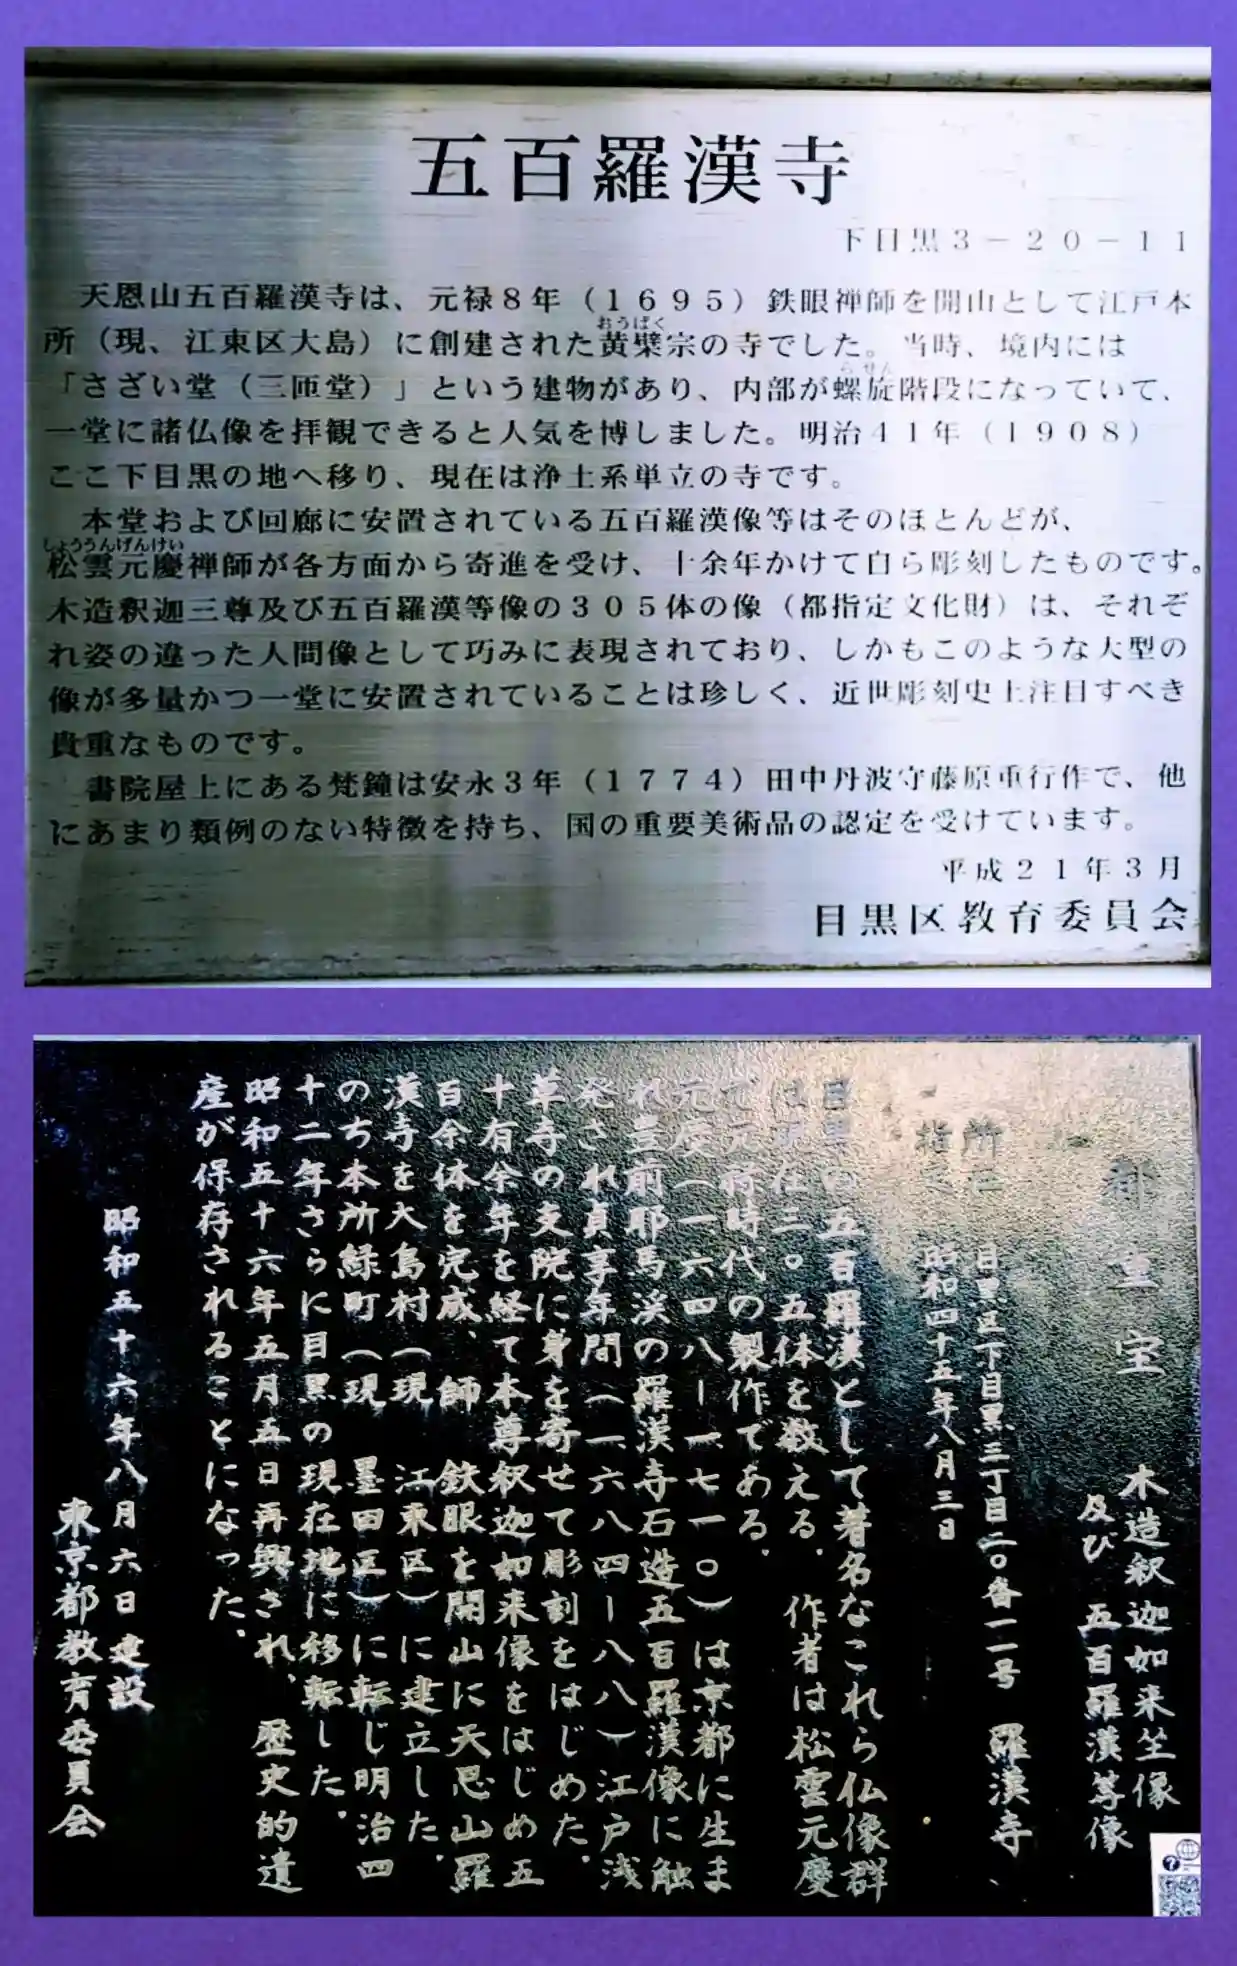 五百羅漢寺
下目黒3－20－11
天恩山五百羅漢寺は、元禄8年（1695）鉄眼禅師を開山として江戸本
所（現、江東区大島）に創建された黄檗宗の寺でした。当時、境内には
おうばく
「さざい堂（三匝堂）」という建物があり、内部が螺旋階段になっていて、
らせん
一堂に諸仏像を拝観できると人気を博しました。明治41年（1908）
ここ下目黒の地へ移り、現在は浄土系単立の寺です。
本堂および回廊に安置されている五百羅漢像等はそのほとんどが、
しょううんげんけい
松雲元慶禅師が各方面から寄進を受け、十余年かけて自ら彫刻したものです。
木造釈迦三尊及び五百羅漢等像の305体の像（都指定文化財）は、それぞ
れ姿の違った人間像として巧みに表現されており、しかもこのような大型の
像が多量かつ一堂に安置されていることは珍しく、近世彫刻史上注目すべき
貴重なものです。
書院屋上にある梵鐘は安永3年（1774）田中丹波守藤原重行作で、他
にあまり類例のない特徴を持ち、国の重要美術品の認定を受けています。
平成21年3月
目黒区教育委員会
都重宝
木造釈迦如来坐像
及び 五百羅漢等像
所在 目黒区下目黒三丁目二〇番一一号 羅漢寺
指定 昭和四十五年八月三日
目黒の五百羅漢として著名なこれら仏像群
は現在三〇五体を数える。作者は松雲元慶
で元禄時代の製作である。
元慶（一六四八ー一七一〇）は京都に生ま
れ豊前耶馬渓の羅漢寺石造五百羅漢像に触
発され貞享年間（一六八四ー八八）江戸浅
草寺の支院に身を寄せて彫刻をはじめた。
十有余年を経て本尊釈迦如来像をはじめ五
百余体を完成、師 鉄眼を開山に天恩山羅
漢寺を大島村（現 江東区）に建立した。
のち本所緑町（現 墨田区）に転じ明治四
十二年さらに目黒の現在地に移転した。
昭和五十六年五月五日再興され、歴史的遺
産が保存されることになった。
昭和五十六年八月六日 建設
東京都教育委員会